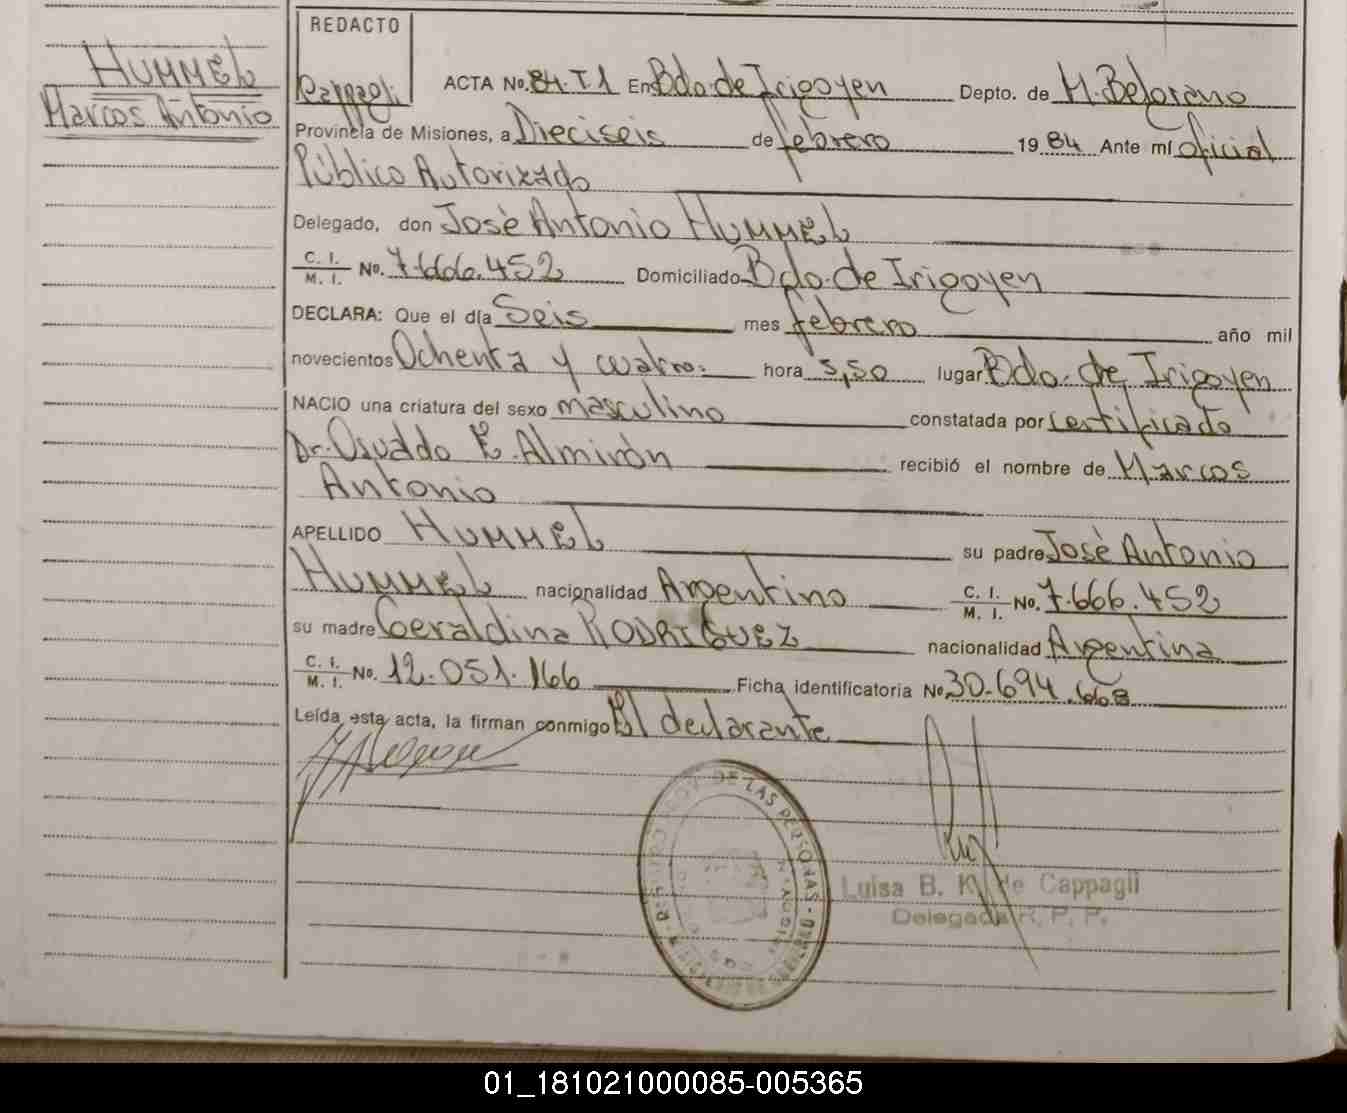 HUMMEL
Marcos Antonio
REDACTO
Cappagli
ACTA No. 84-T1 En Bdo. de Irigoyen Depto. de M. Belgrano
Provincia de Misiones, a Dieciseis de febrero 19 84 Ante mí oficial
Público Autorizado
Delegado, don José Antonio HUMMEL
C. I.
M. I. No. 7.666.452 Domiciliado Bdo. de Irigoyen
DECLARA: Que el día Seis mes febrero año mil
novecientos Ochenta y cuatro. hora 5,50 lugar Bdo. de Irigoyen
NACIO una criatura del sexo masculino constatada por certificado
Dr. Osvaldo E. Almirón recibió el nombre de Marcos
Antonio
APELLIDO HUMMEL su padre José Antonio
HUMMEL nacionalidad Argentino C. I.
M. I. No. 7.666.452
su madre Geraldina RODRIGUEZ nacionalidad Argentina
C. I.
M. I. No. 12.051.166 Ficha identificatoria No. 30.694.668
Leída esta acta, la firman conmigo El declarante
DE LAS PERSONAS
Luisa B. K. de Cappagli
Delegada R. P. P.
01_181021000085-005365